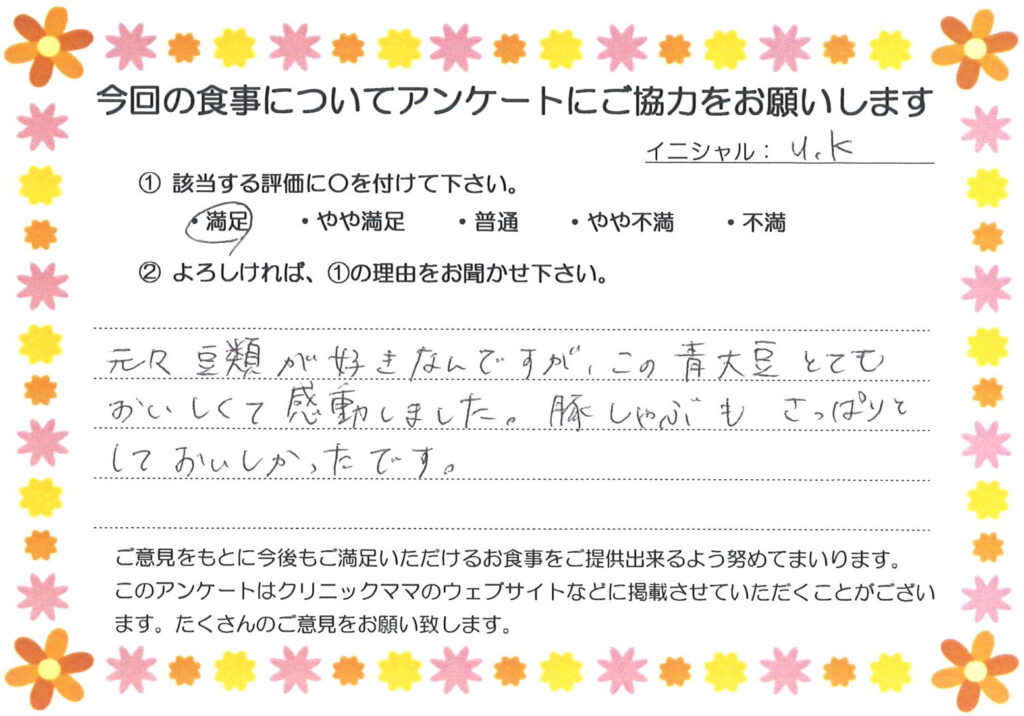 今回の食事についてアンケートにご協力をお願いします
イニシャル： U.K
① 該当する評価に〇を付けて下さい。
・満足 ・やや満足 ・普通 ・やや不満 ・不満
② よろしければ、①の理由をお聞かせ下さい。
元々豆類が好きなんですが、この青大豆とても
おいしくて感動しました。豚しゃぶもさっぱりと
しておいしかったです。
ご意見をもとに今後もご満足いただけるお食事をご提供出来るよう努めてまいります。
このアンケートはクリニックママのウェブサイトなどに掲載させていただくことがござい
ます。たくさんのご意見をお願い致します。